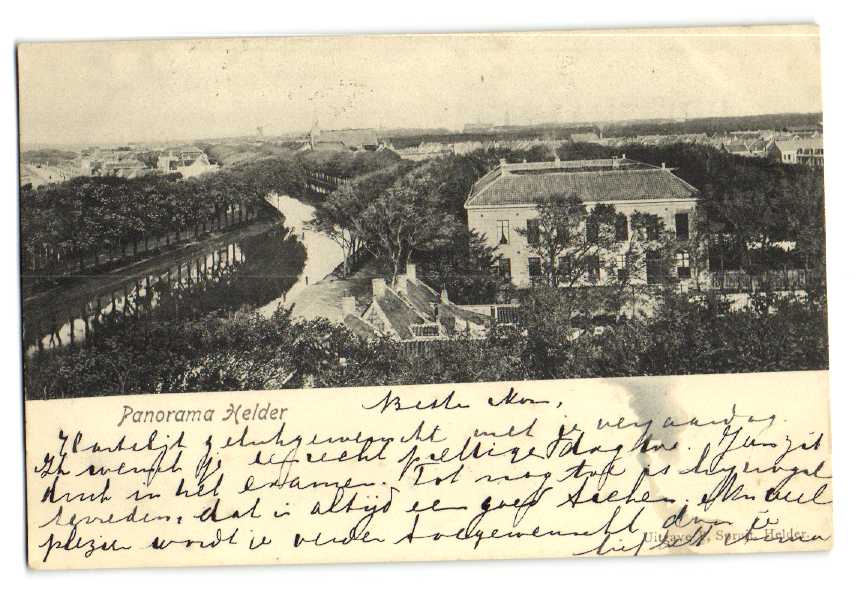 Panorama Helder
Beste Mon,
Hartelijk gelukgewenscht met je verjaardag.
Ik wensch je een recht prettige dag toe. Jan zit
druk in het examen. Tot nog toe is hij nogal
tevreden, dat is altijd een goed teeken. Nu veel
plezier wordt je verder toegewenscht door je
Uitgave Spruit, Helder.